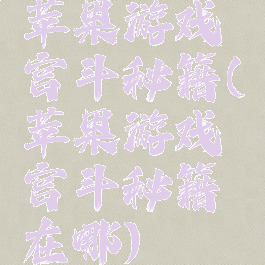 苹果游戏
宫斗秘籍(
苹果游戏
宫斗秘籍
在哪)